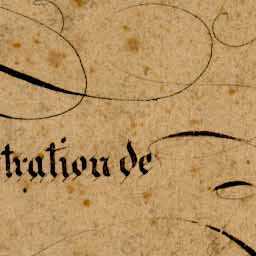 tration de